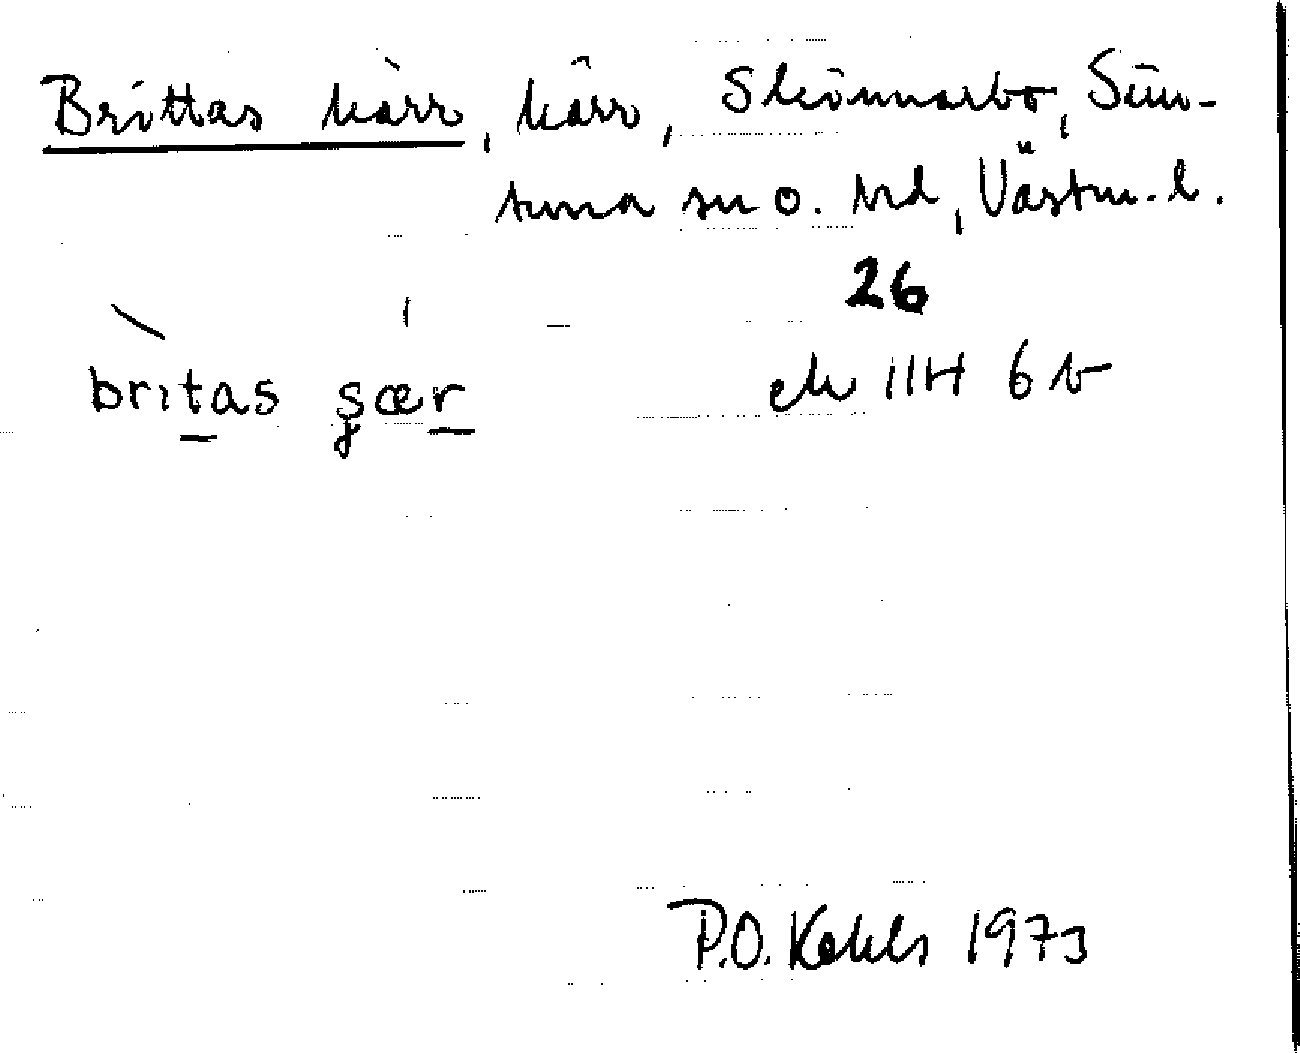 Brittas kärr, kärr, Skönnarbo, Sim-
tuna sn o. hd, Västm. l.
26
britas ek 11H 6 b
P.O. 1973